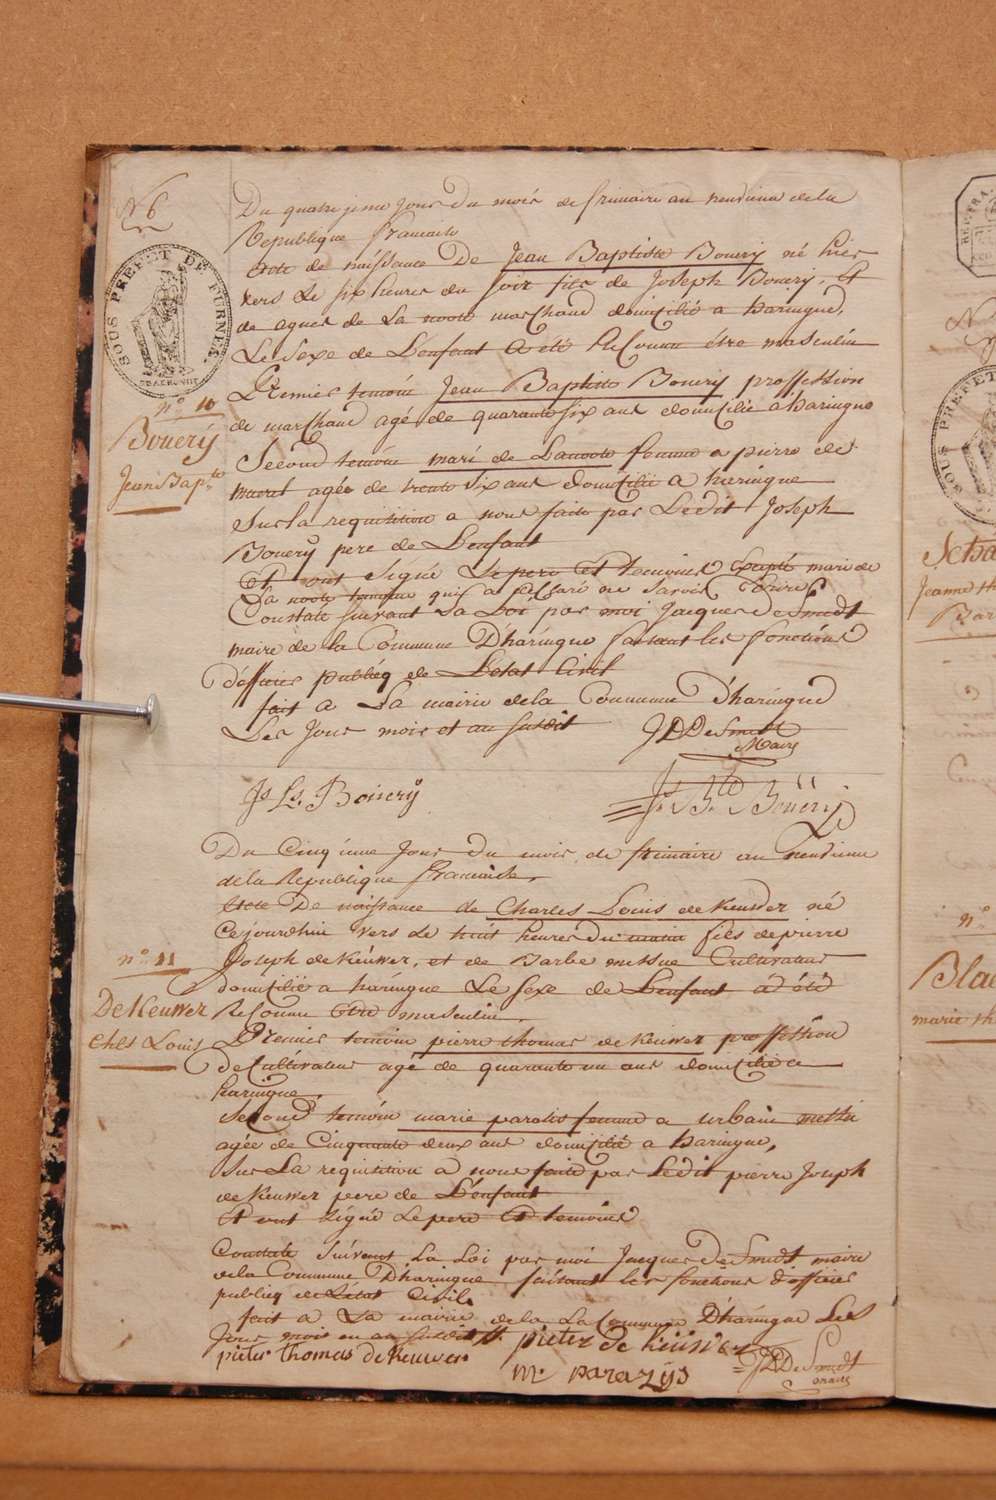 N 6
SOUS PREFET DE FURNES.
nº 10
Bouerÿ
Jean Bapte
Du quatrieme Jour Du mois de frimaire an neuvieme de la
Republique francaise
Acte de naissance De Jean Baptiste Bouery né hier
vers Le six heures du soir fils de Joseph Bouery, et
de agnes de La noote marchand domicilié a haringue,
Le Sexe de L'enfant a été Reconnu étre masculin
Premier temoin Jean Baptiste Bouerÿ proffession
de marchand agé de quarante six ans domicilié a haringue
Second temoin mari de Lanoote femme a pierre de
agée de trente Six ans domicilié a haringue
Sur la requisition a nous faite par Ledit Joseph
Bouerÿ pere de L'enfant
Et ont Signé Le pere Et temoins Excepté marie de
La noote temoin qui a declaré ne Savoir Ecrire
Constaté suivant La Loi par moi Jacques DeSmedt
maire de la Commune D'haringue faisant les fonctions
D'officier publicq de L'etat Civil
fait a La mairie de la Commune D'haringue
Les Jour mois et an susdit
JDDeSmedt
Maire
Js Ls. Bouerÿ
Jn Bte Bouërÿ
Du Cinqieme Jour Du mois de frimaire an neuvieme
de la Republique francaise,
Acte De naissance de Charles Louis de Keuwer né
Ce jourdhui vers Le huit heures Du matin fils de pierre
nº 11
Joseph de Keuwer, et de Barbe messue Cultivateur
domicilié a haringue Le sexe de L'enfant a été
DeKeuwer
Chls Louis
Reconnu Etre masculin,
Premier temoin pierre thomas de Keuwer proffession
de Cultivateur agé de quarante un ans domicilié a
haringue,
Second temoin marie paratis femme a urbain
agée de Cinquante deux ans domicilié a haringue,
Sur La requisition a nous faite par Ledit pierre Joseph
de Keuwer pere de L'enfant
Et ont signé Le pere Et temoins
Constaté suivant La Loi par moi Jacques DeSmedt maire
de la Commune D'haringue faisant les fonctions d'officier
publicq de L'état Civil,
fait a La mairie de la La Commune D'haringue Les
Jour mois en an susdit pieter de Keüwer
pieter thomas de Keuwer
JDDeSmedt
maire
m. parazijs
nº
marie th